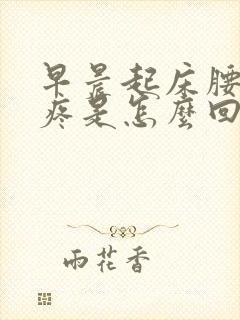 早晨起床腰
疼是怎麼回
雨花香